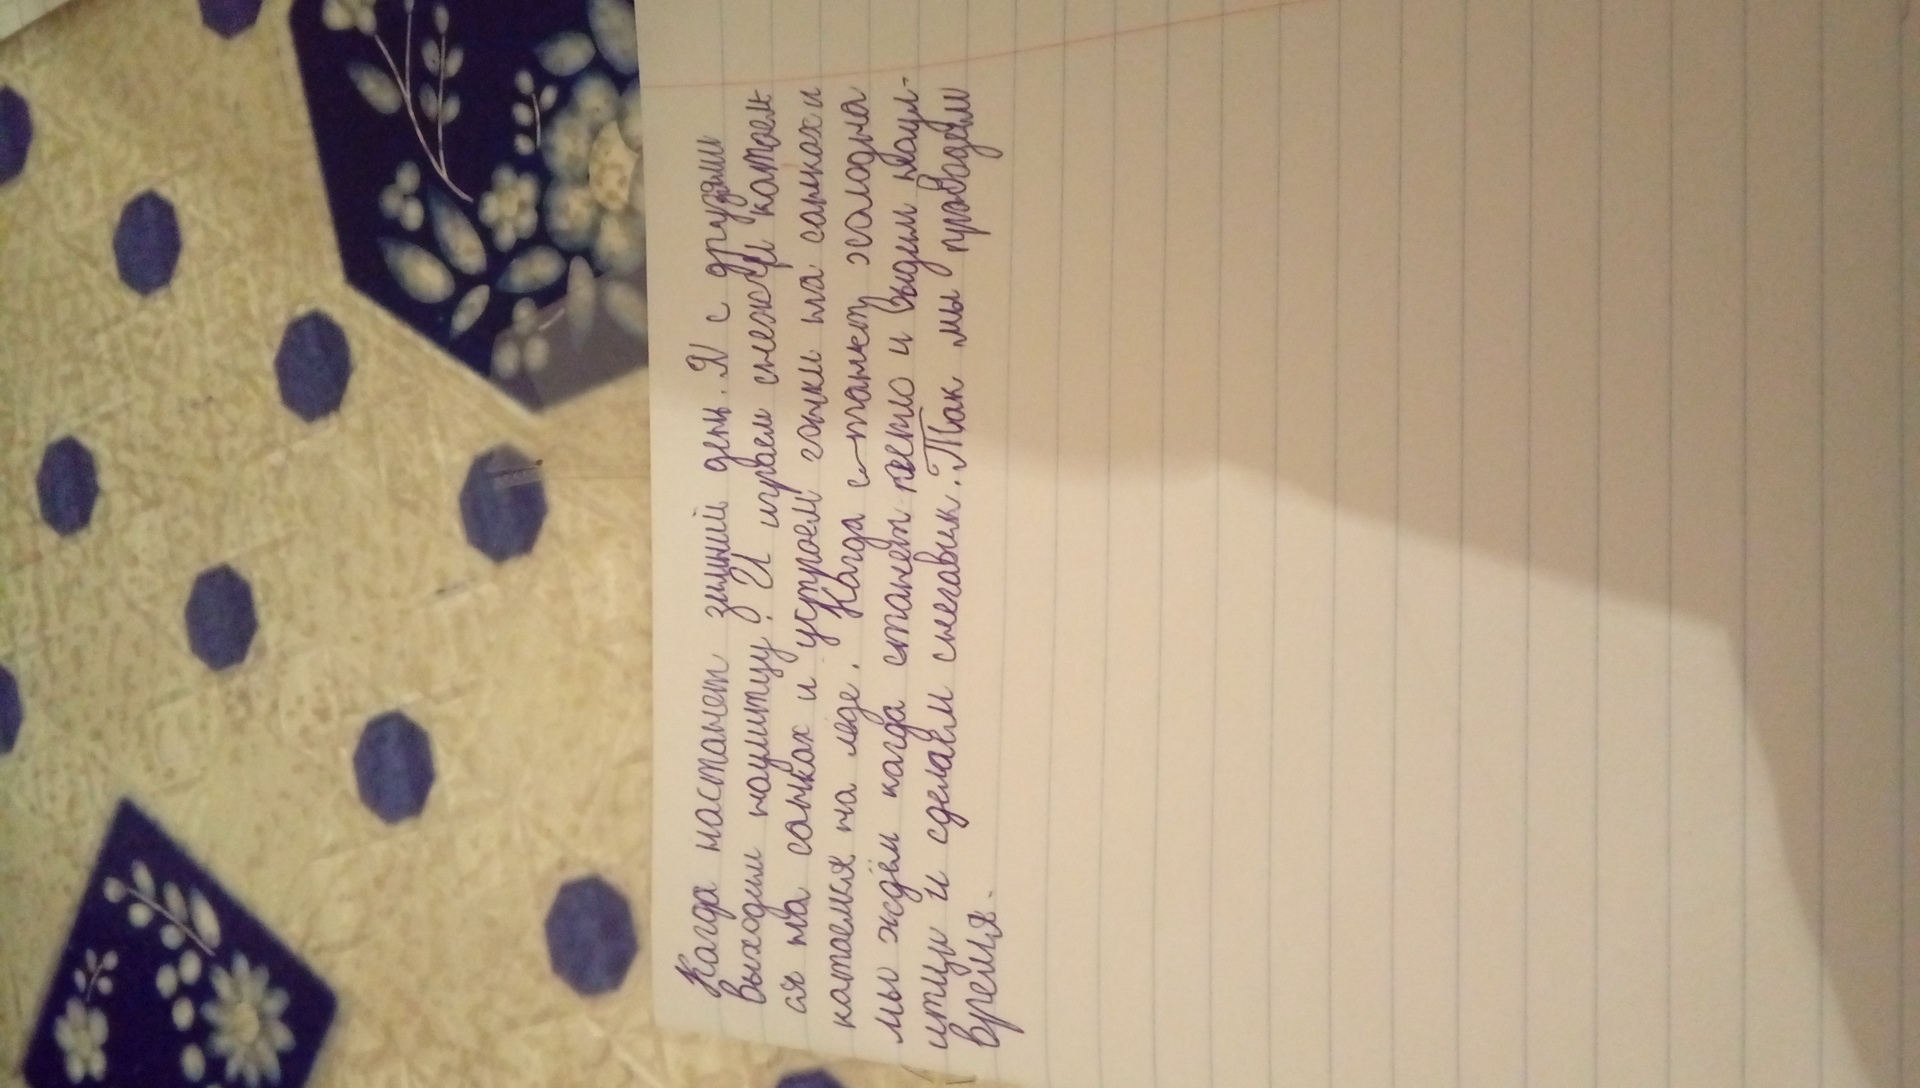 Кагда настанет зимний день. Я с друзями
выходим наулитцу. И играем снежки катаем
ся на санках и устроем гонки на санках и
катаемся на леде. Кагда станет халодна
мы ждём кагда станет легко и выдим наул-
итцы и сделаем снегавик. Так мы правадем
время.